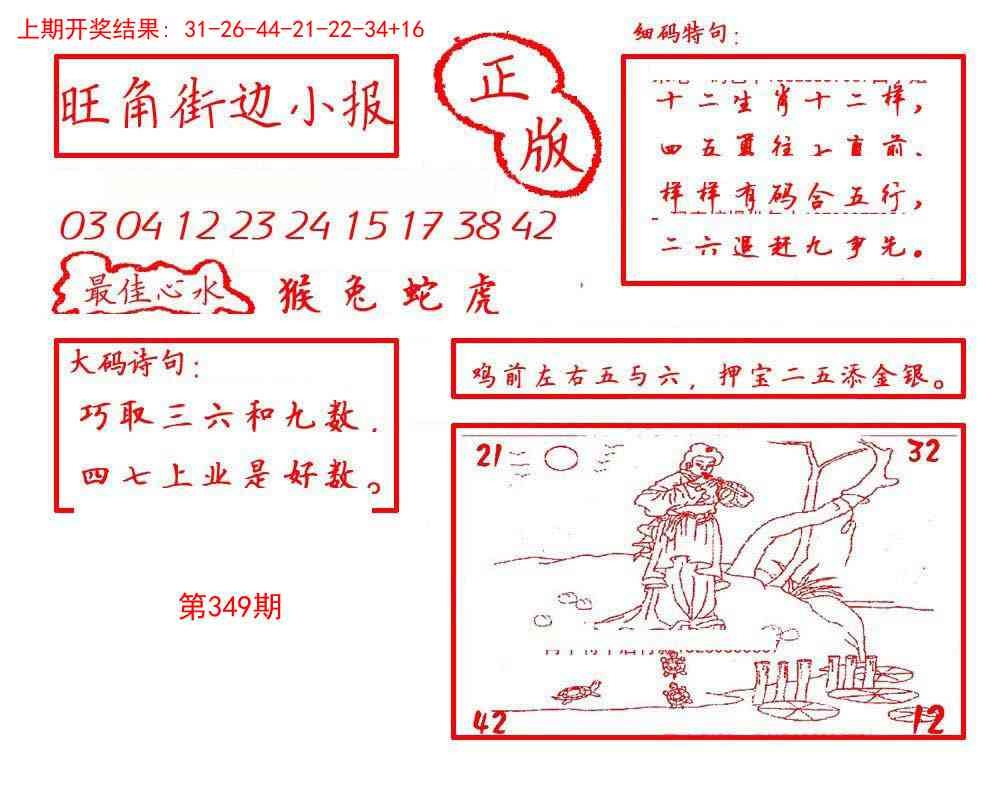 上期开奖结果：31-26-44-21-22-34+16
细码特句：
旺角街边小报
正
版
十二生肖十二样，
四五勇往上直前、
样样有码合五行，
二六追赶九争先。
03 04 12 23 24 15 17 38 42
最佳心水
猴兔蛇虎
大码诗句：
巧取三六和九数．
四七上业是好数。
鸡前左右五与六，押宝二五添金银。
21
32
42
12
第349期